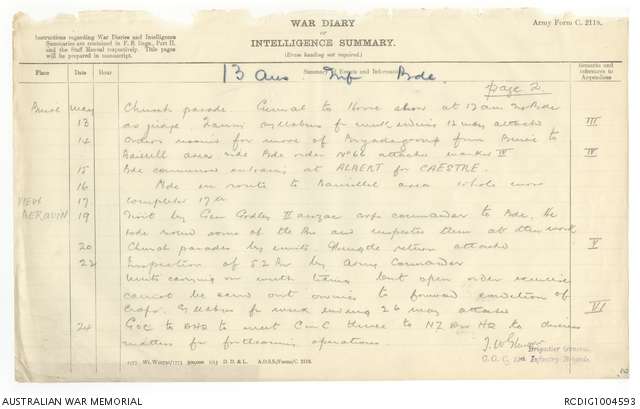 WAR DIARY
or
INTELLIGENCE SUMMARY.
(Erase heading not required.)
Army Form C. 2118.
Instructions regarding War Diaries and Intelligence
Summaries are contained in F. S. Regs., Part II.
and the Staff Manual respectively. Title pages
will be prepared in manuscript.
13 Aus Inf Bde.
Place Date Hour Summary of Events and Information Remarks and references to Appendices
page 2
Buire May Church parade General to Horse show at 12 Bde
13 as judge. Training syllabus for week ending 12 may attached III
14 Orders issued for move of Brigade group from Buire to
Bailleul area vide Bde order No 66 attached marked IV IV
15 Bde commences entraining at ALBERT for CAESTRE.
16 Bde en route to Bailleul area whole move
VIEUX 17 completed 17th
BERQUIN 19 Visit by Gen Godley II anzac corps commander to Bde. He
rode round some of the Bns and inspected them at their work
20 Church parades by units. Strength return attached V
22 Inspection of 52 Bn by Army Commander
Units carrying on with training but open order exercises
cannot be carried out owing to forward condition of
crops. Syllabus for week ending 26 may attached VI
24 GOC to DHQ to meet C in C thence to NZ Div HQ to discuss
matters for forthcoming operations.
Brigadier General
G.O.C. 13th Infantry Brigade.
A.D.S.S./Forms/C. 2118.
AUSTRALIAN WAR MEMORIAL
RCDIG1004593